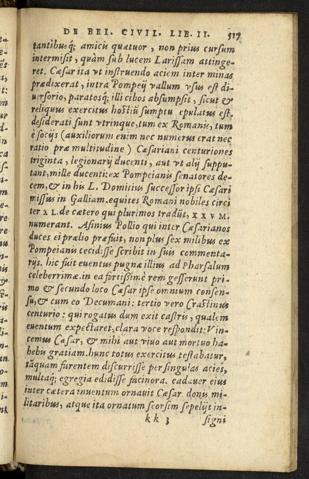 DE BEL. CIVIL. LIB. II. 519
tantibusq; amicis quatuor, non prius cursum
intermisit, quàm sub lucem Larissam attinge-
ret. Cæsar ita vt instruendo aciem inter minas
prædixerat, intra Pompeij vallum vsus est di-
uersorio, paratosq; illi cibos absumpsit, sicut &
reliquus exercitus hostiũ sumptu epulatus est,
desiderati sunt vtrinque, tum ex Romanis, tum
è socijs (auxiliorum enim nec numerus erat nec
ratio præ multitudine) Cæsariani centuriones
triginta, legionarij ducenti, aut vt alij suppu-
tant, mille ducenti: ex Pompeianis senatores de-
cem, & in his L. Domitius successor ipsi Cæsari
missus in Galliam. equites Romani nobiles circi
ter XL. de cætero qui plurimos tradũt, XXV M.
numerant. Asinius Pollio qui inter Cæsarianos
duces ei prælio præfuit, non plus sex milibus ex
Pompeianis cecidisse scribit in suis commenta-
rijs. hic fuit euentus pugnæ illius ad Pharsalum
celeberrimæ. in ea fortissimè rem gesserunt pri-
mo & secundo loco Cæsar ipse omnium consen-
su, & cum eo Decumani: tertio vero Crastinus
centurio: qui rogatus dum exit castris, qualem
euentum expectaret, clara voce respondit: Vin-
cemus Cæsar, & mihi aut viuo aut mortuo ha-
bebis gratiam. hunc totus exercitus testabatur,
tãquam furentem discurrisse per singulas acies,
multaq; egregia edidisse facinora. cadauer eius
inter cætera inuentum ornauit Cæsar donis mi-
litaribus, atque ita ornatum seorsim sepelijt in-
kk 3 signi